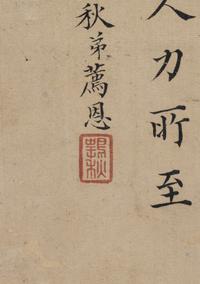 人力所至
秋弟薦恩